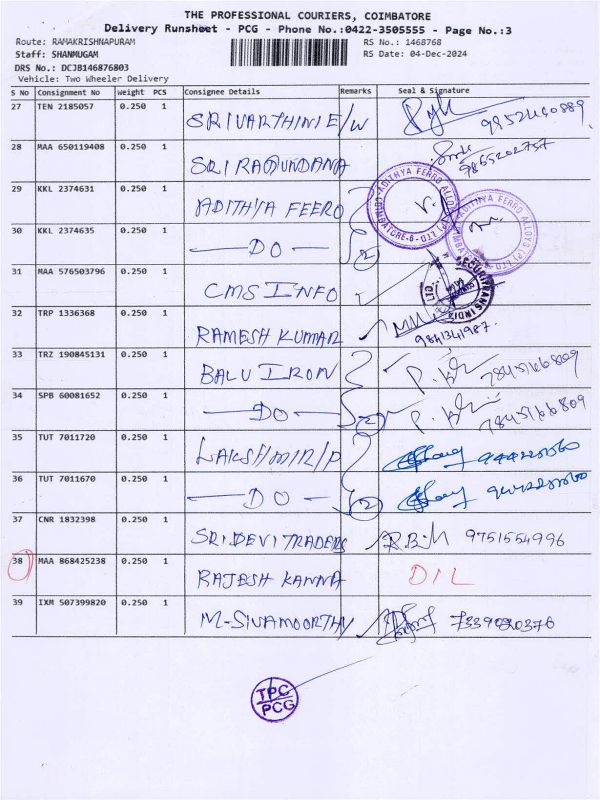 THE PROFESSIONAL COURIERS, COIMBATORE
Delivery Runsheet - PCG - Phone No.:0422-3505555 - Page No.:3
Route: RAMAKRISHNAPURAM RS No.: 1468768
Staff: SHANMUGAM RS Date: 04-Dec-2024
DRS No.: DCJB146876803
Vehicle: Two Wheeler Delivery
S No Consignment No Weight PCS Consignee Details Remarks Seal & Signature
27 TEN 2185057 0.250 1 SRIVARTHINI E/W
28 MAA 650119408 0.250 1 9865202757
29 KKL 2374631 0.250 1 ADITHYA FEERO
30 KKL 2374635 0.250 1 DO 2
31 MAA 576503796 0.250 1 CMS INFO
32 TRP 1336368 0.250 1 RAMESH KUMAR 9841341987
33 TRZ 190845131 0.250 1 BALU IRON 7845166809
34 SPB 60081652 0.250 1 DO 2 7845166809
35 TUT 7011720 0.250 1 LAKSHMI R/P
36 TUT 7011670 0.250 1 DO 2
37 CNR 1832398 0.250 1 SRIDEVI TRADERS 9751554996
38 MAA 868425238 0.250 1 RAJESH KANNA D/L
39 IXM 507399820 0.250 1 M-SIVAMOORTHY
TPC
PCG